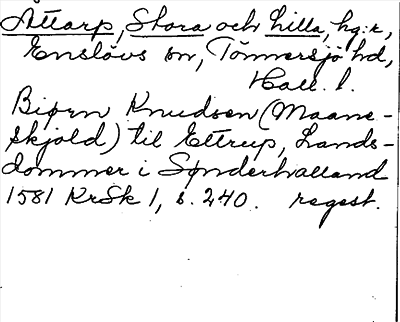 Attarp, Stora och Lilla, hg:r,
Enslövs sn, Tönnersjö hd,
Hall. l.
Biørn Knudsen (Maane-
skjold) til Ettrup, Lands-
dommer i Sønderhalland
1581 KrSk 1, s. 240. regest.